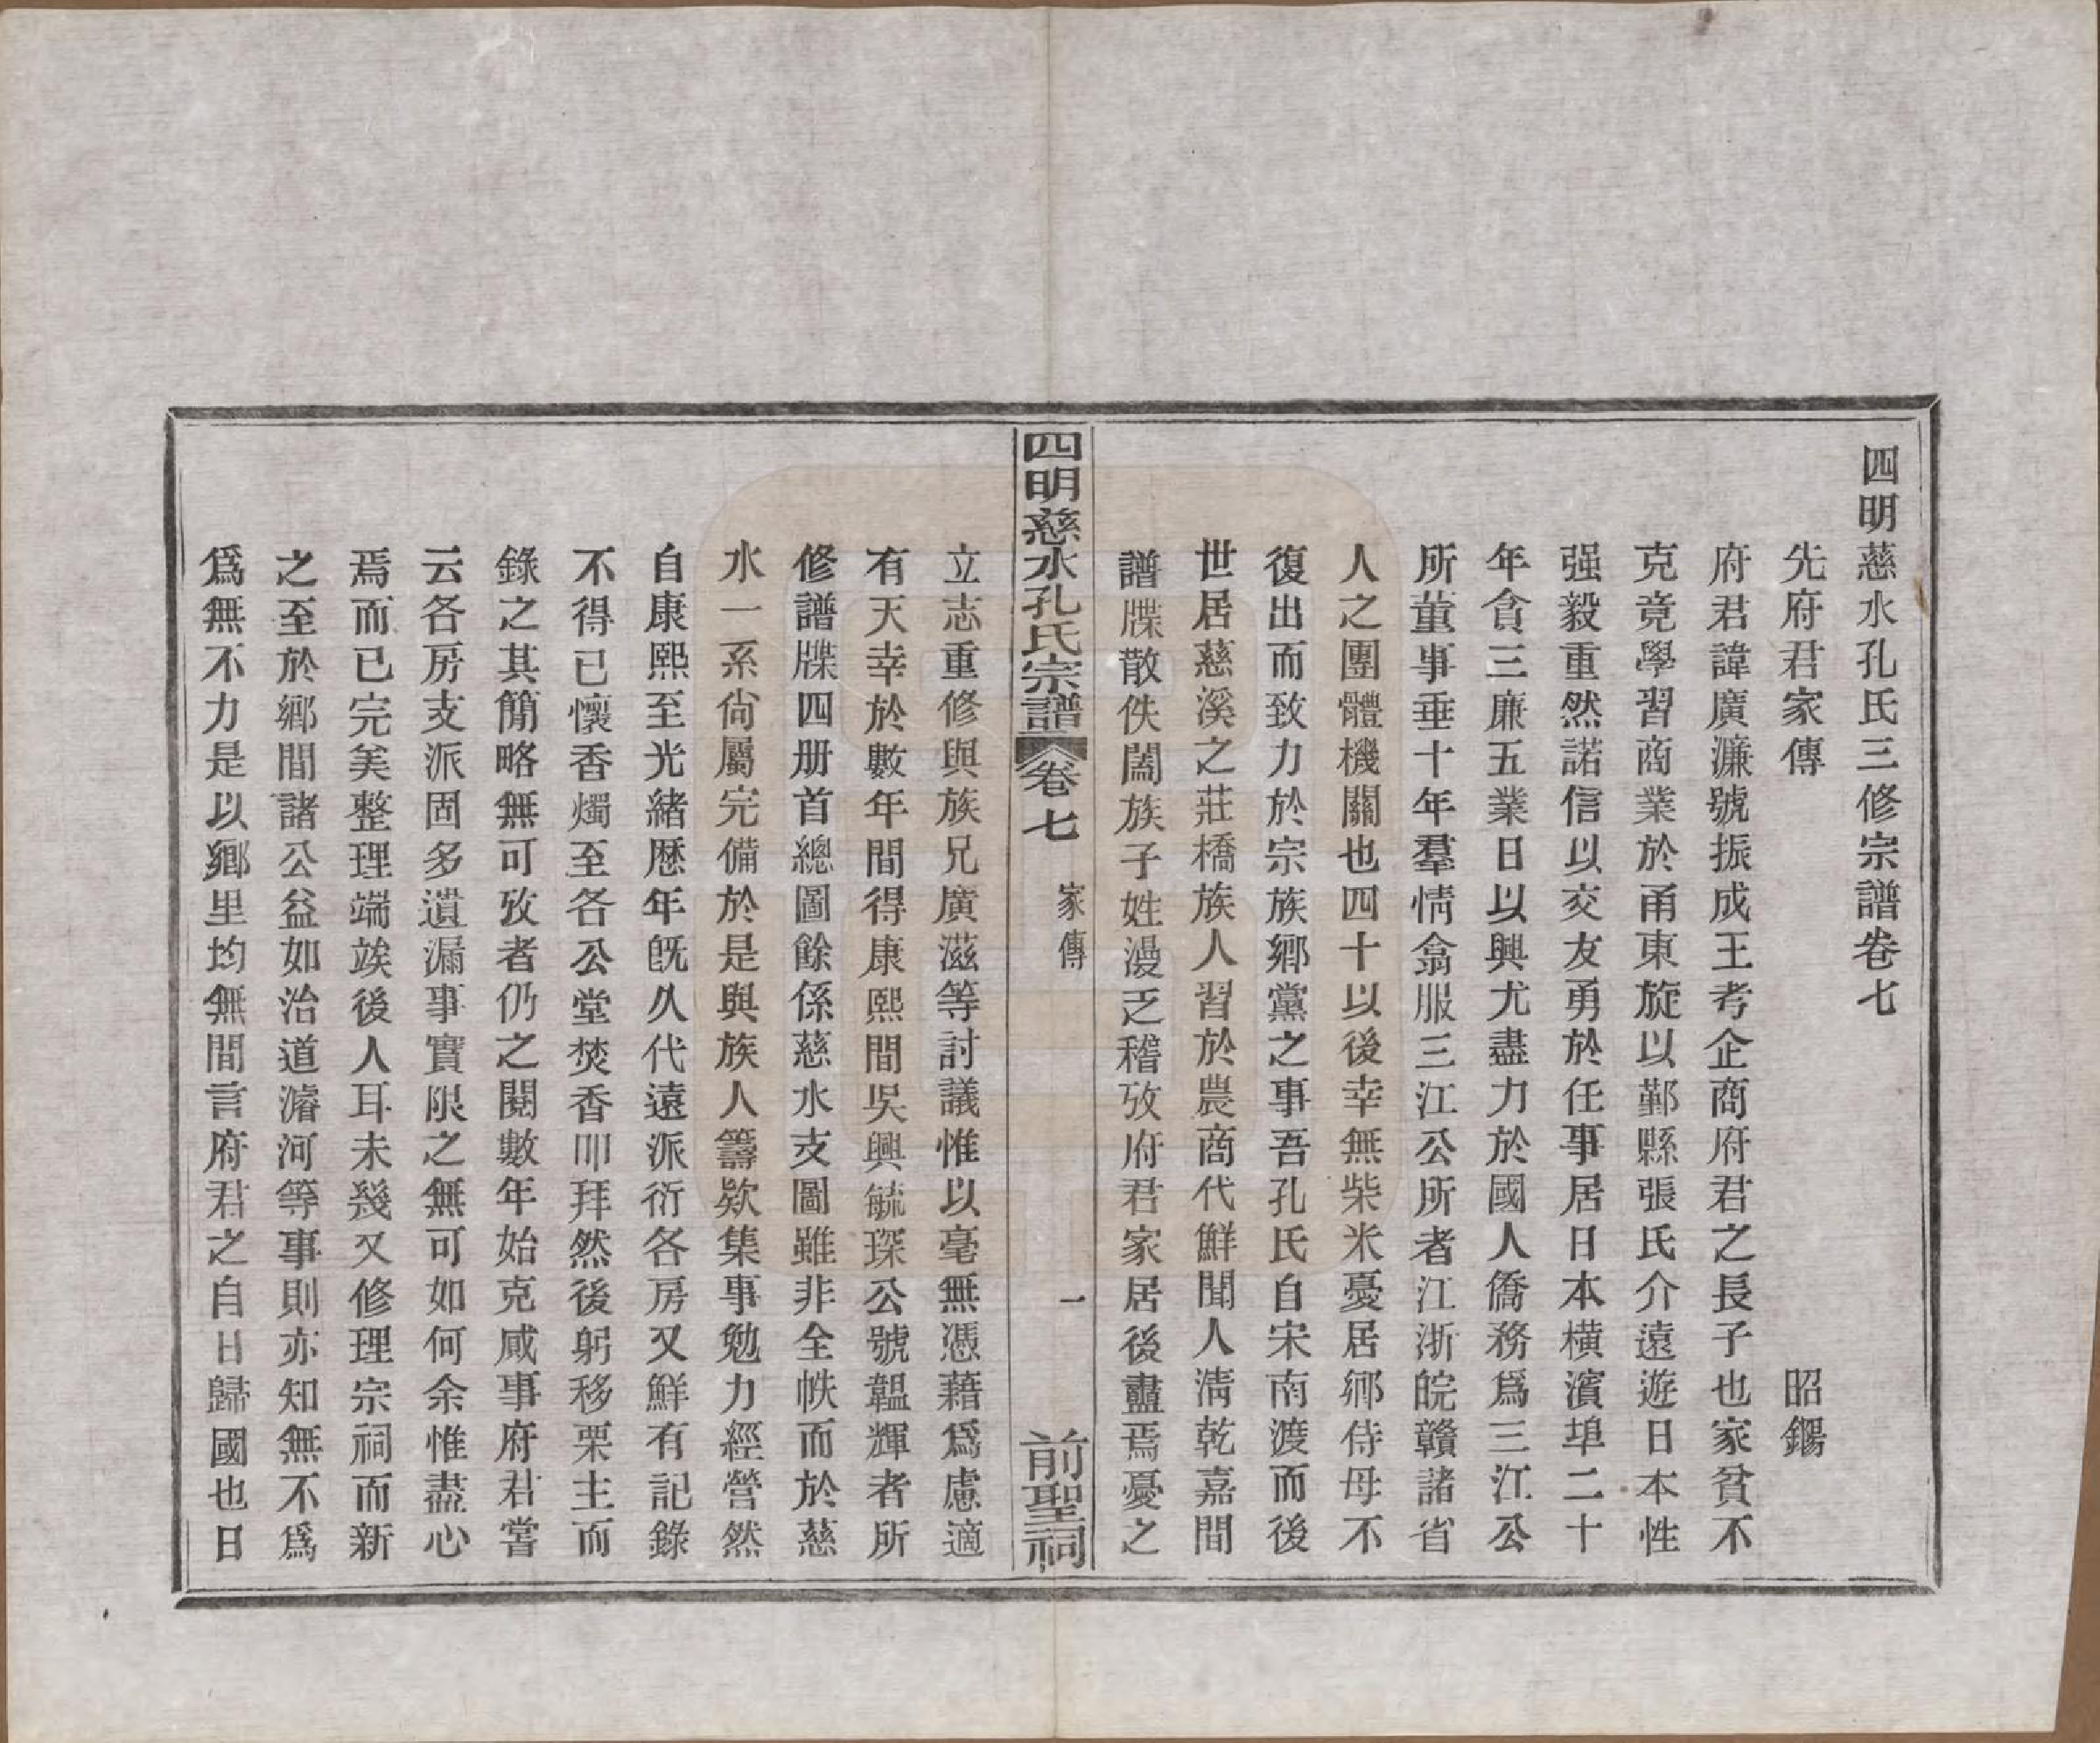 四明慈水孔氏三修宗譜卷七
先府君家傳　昭鍚
府君諱廣濂號振成王考企商府君之長子也家貧不
克竟學習商業於甬東旋以鄞縣張氏介遠遊日本性
强毅重然諾信以交友勇於任事居日本橫濱埠二十
年貪三廉五業日以興尤盡力於國人僑務爲三江公
所董事垂十年羣情翕服三江公所者江浙皖贛諸省
人之團體機關也四十以後幸無柴米憂居鄉侍母不
復出而致力於宗族鄉黨之事吾孔氏自宋南渡而後
世居慈溪之莊橋族人習於農商代鮮聞人淸乾嘉間
譜牒散佚闔族子姓漫乏稽攷府君家居後盡焉憂之
四明慈水孔氏宗譜　卷七　家傳　一　前聖祠
立志重修與族兄廣滋等討議惟以毫無憑藉爲慮適
有天幸於數年間得康熙間吳興毓琛公號韞輝者所
修譜牒四册首總圖餘係慈水支圖雖非全帙而於慈
水一系尙屬完備於是與族人籌欵集事勉力經營然
自康熙至光緒歷年旣久代遠派衍各房又鮮有記錄
不得已懷香燭至各公堂焚香叩拜然後躬移栗主而
錄之其簡略無可攷者仍之閱數年始克咸事府君嘗
云各房支派固多遺漏事實限之無可如何余惟盡心
焉而已完美整理端竢後人耳未幾又修理宗祠而新
之至於鄉間諸公益如治道濬河等事則亦知無不爲
爲無不力是以鄉里均無間言府君之自日歸國也日